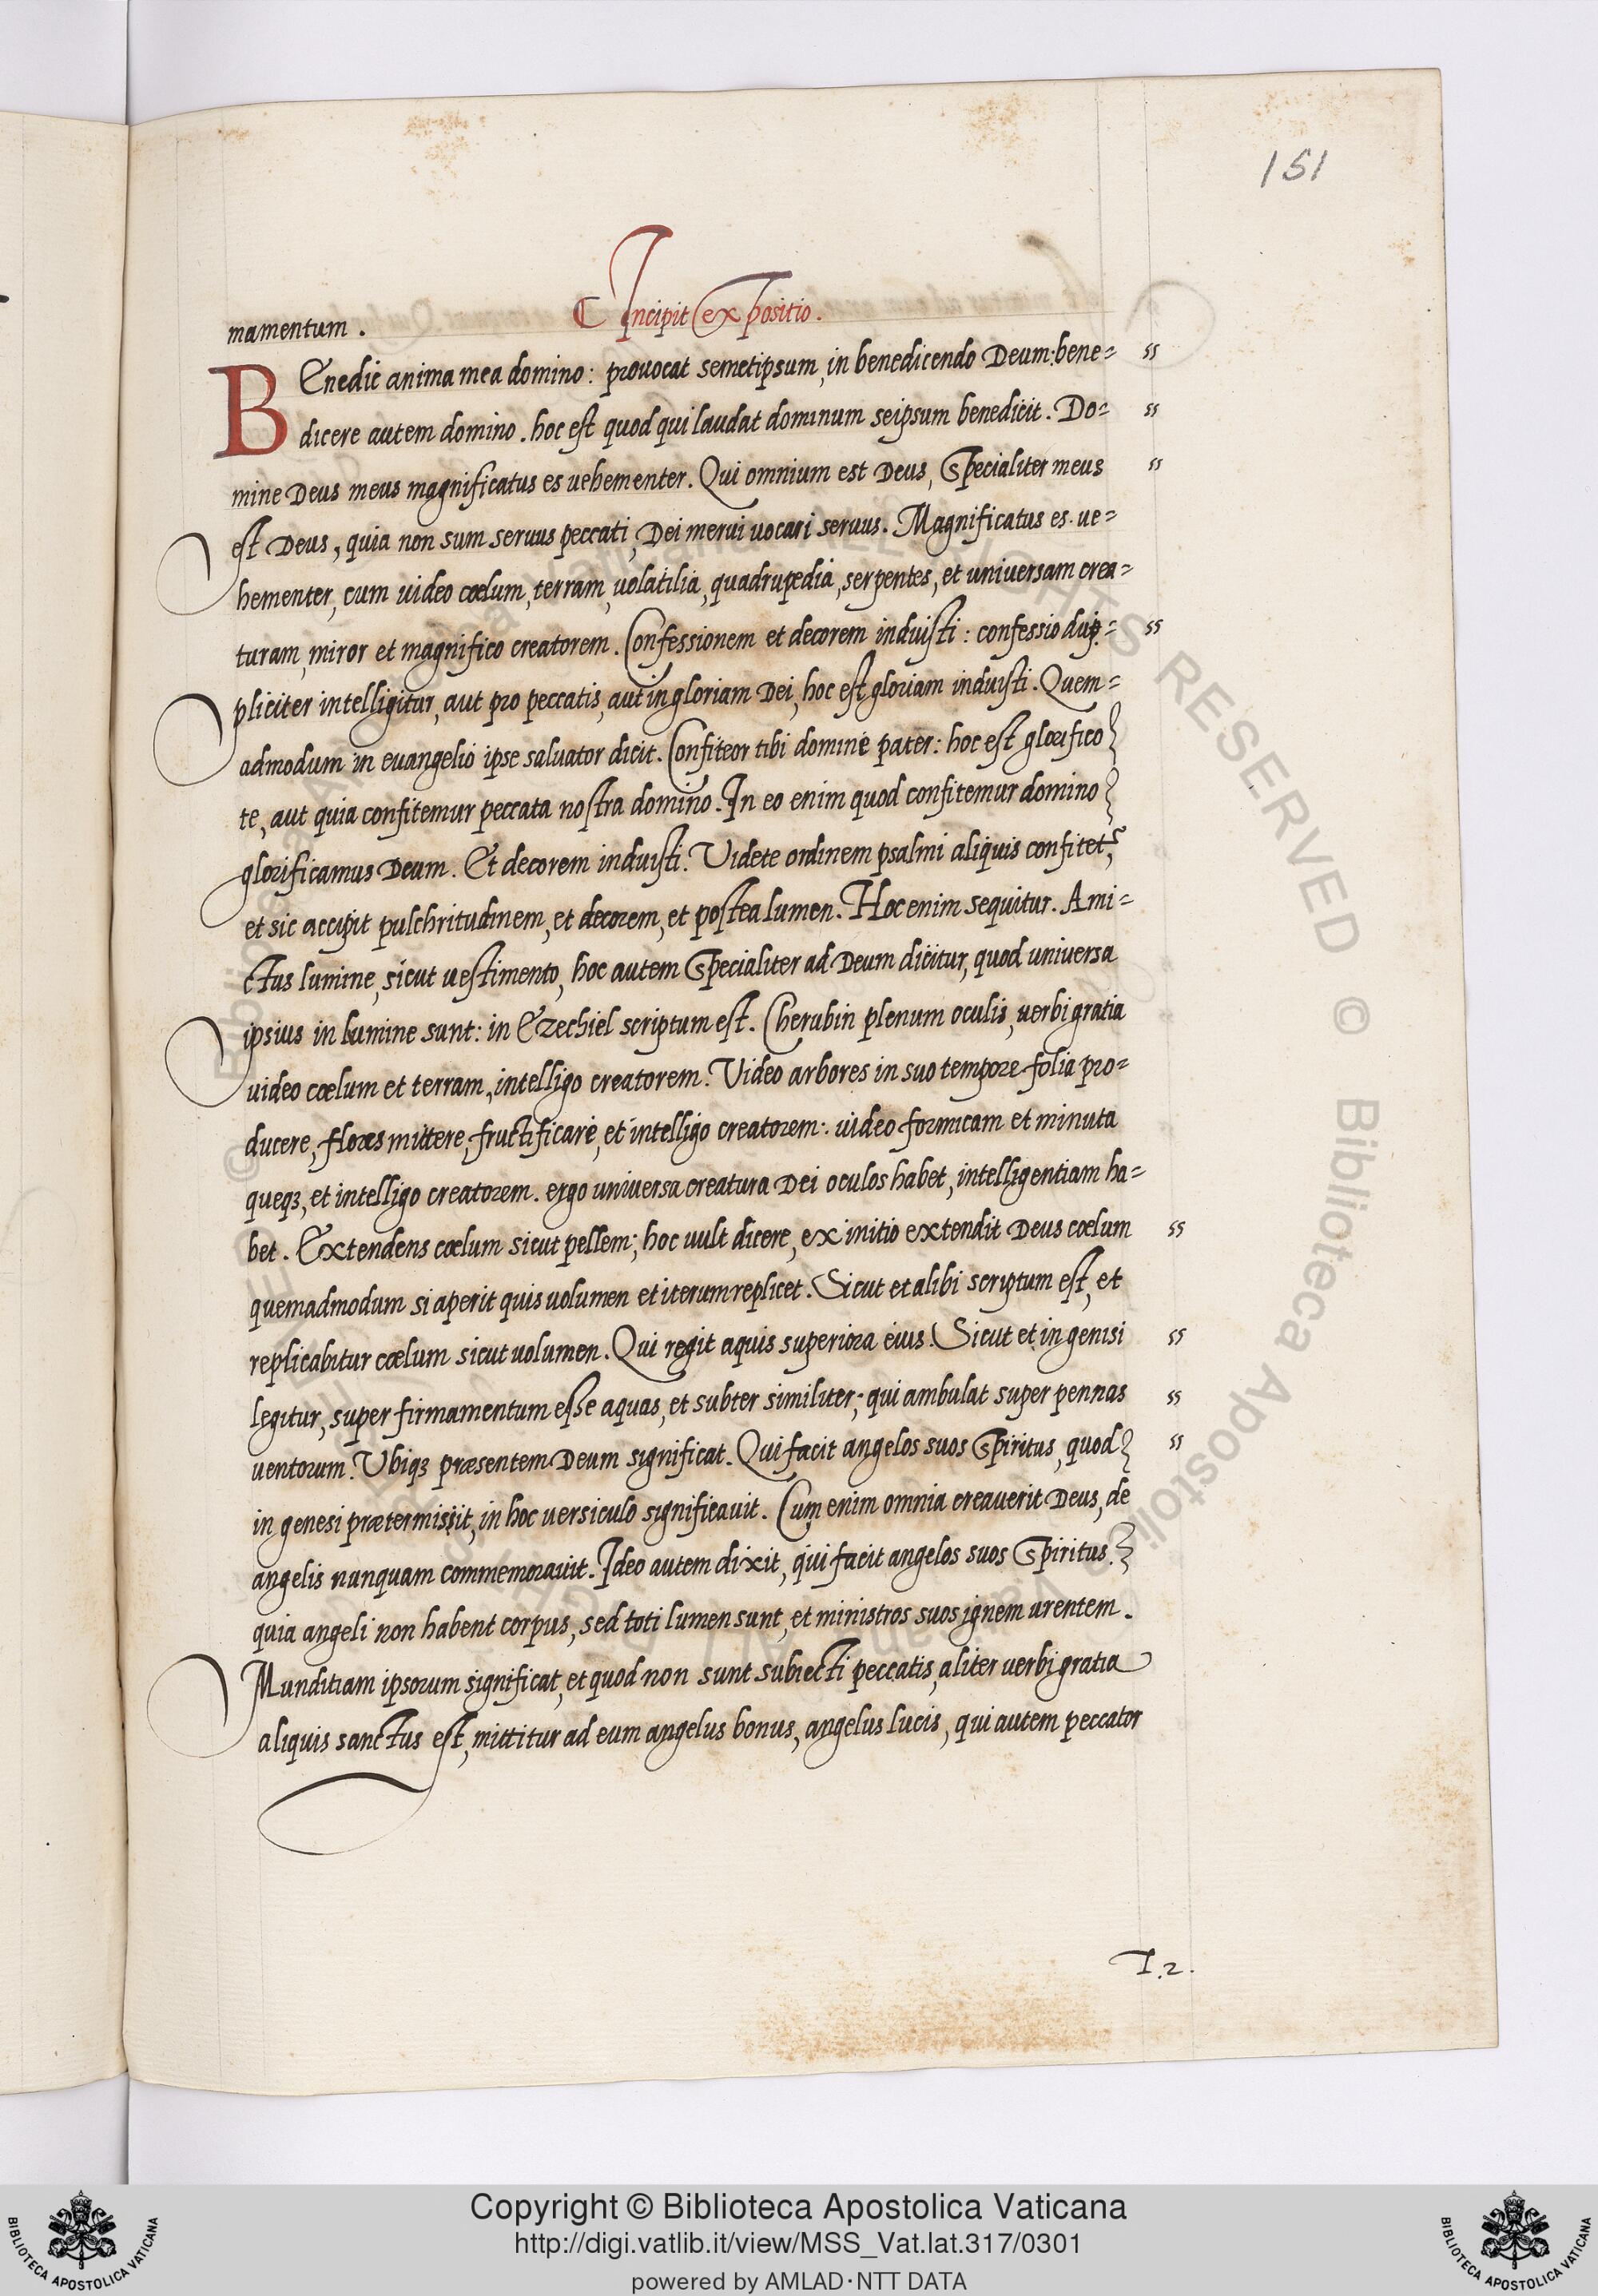 151
mamentum. ⸿ Incipit expositio.
BEnedic anima mea domino: provocat semetipsum, in benedicendo Deum: bene= ss
dicere autem domino. hoc est quod qui laudat dominum seipsum benedicit. Do= ss
mine Deus meus magnificatus es vehementer. Qui omnium est Deus, Specialiter meus ss
est Deus, quia non sum servus peccati, Dei merui vocari servus. Magnificatus es. ve=
hementer, cum video cœlum, terram, volatilia, quadrupedia, serpentes, et universam crea=
turam, miror et magnifico creatorem. Confessionem et decorem induisti: confessio dup= ss
pliciter intelligitur, aut pro peccatis, aut in gloriam Dei, hoc est gloriam induisti. Quem=
admodum in evangelio ipse salvator dicit. Confiteor tibi domine pater: hoc est glorifico
te, aut quia confitemur peccata nostra domino. In eo enim quod confitemur domino
glorificamus Deum. Et decorem induisti. Videte ordinem psalmi aliquis confitet,
et sic accipit pulchritudinem, et decorem, et postea lumen. Hoc enim sequitur. Ami=
ctus lumine, sicut vestimento, hoc autem Specialiter ad Deum dicitur, quod universa
ipsius in lumine sunt: in Ezechiel scriptum est. Cherubin plenum oculis, verbi gratia
video cœlum et terram, intelligo creatorem. Video arbores in suo tempore folia pro=
ducere, flores mittere, fructificare, et intelligo creatorem: video formicam et minuta
queqꝫ, et intelligo creatorem. ergo universa creatura Dei oculos habet, intelligentiam ha=
bet. Extendens cœlum sicut pellem; hoc vult dicere, ex initio extendit Deus cœlum ss
quemadmodum si aperit quis volumen et iterum replicet. Sicut et alibi scriptum est, et
replicabitur cœlum sicut volumen. Qui regit aquis superiora eius. Sicut et in genisi ss
legitur, super firmamentum esse aquas, et subter similiter; qui ambulat super pennas ss
ventorum. Ubiqꝫ præsentem Deum significat. Qui facit angelos suos Spiritus, quod ss
in genesi prætermisiit, in hoc versiculo significavit. Cum enim omnia creaverit Deus, de
angelis nunquam commemoravit. Ideo autem dixit, qui facit angelos suos Spiritus.
quia angeli non habent corpus, sed toti lumen sunt, et ministros suos ignem urentem.
Munditiam ipsorum significat, et quod non sunt subiecti peccatis, aliter verbi gratia
aliquis sanctus est, mittitur ad eum angelus bonus, angelus lucis, qui autem peccator
T.2.
Copyright © Biblioteca Apostolica Vaticana
http://digi.vatlib.it/view/MSS_Vat.lat.317/0301
powered by AMLAD·NTT DATA
BIBLIOTECA APOSTOLICA VATICANA
BIBLIOTECA APOSTOLICA VATICANA